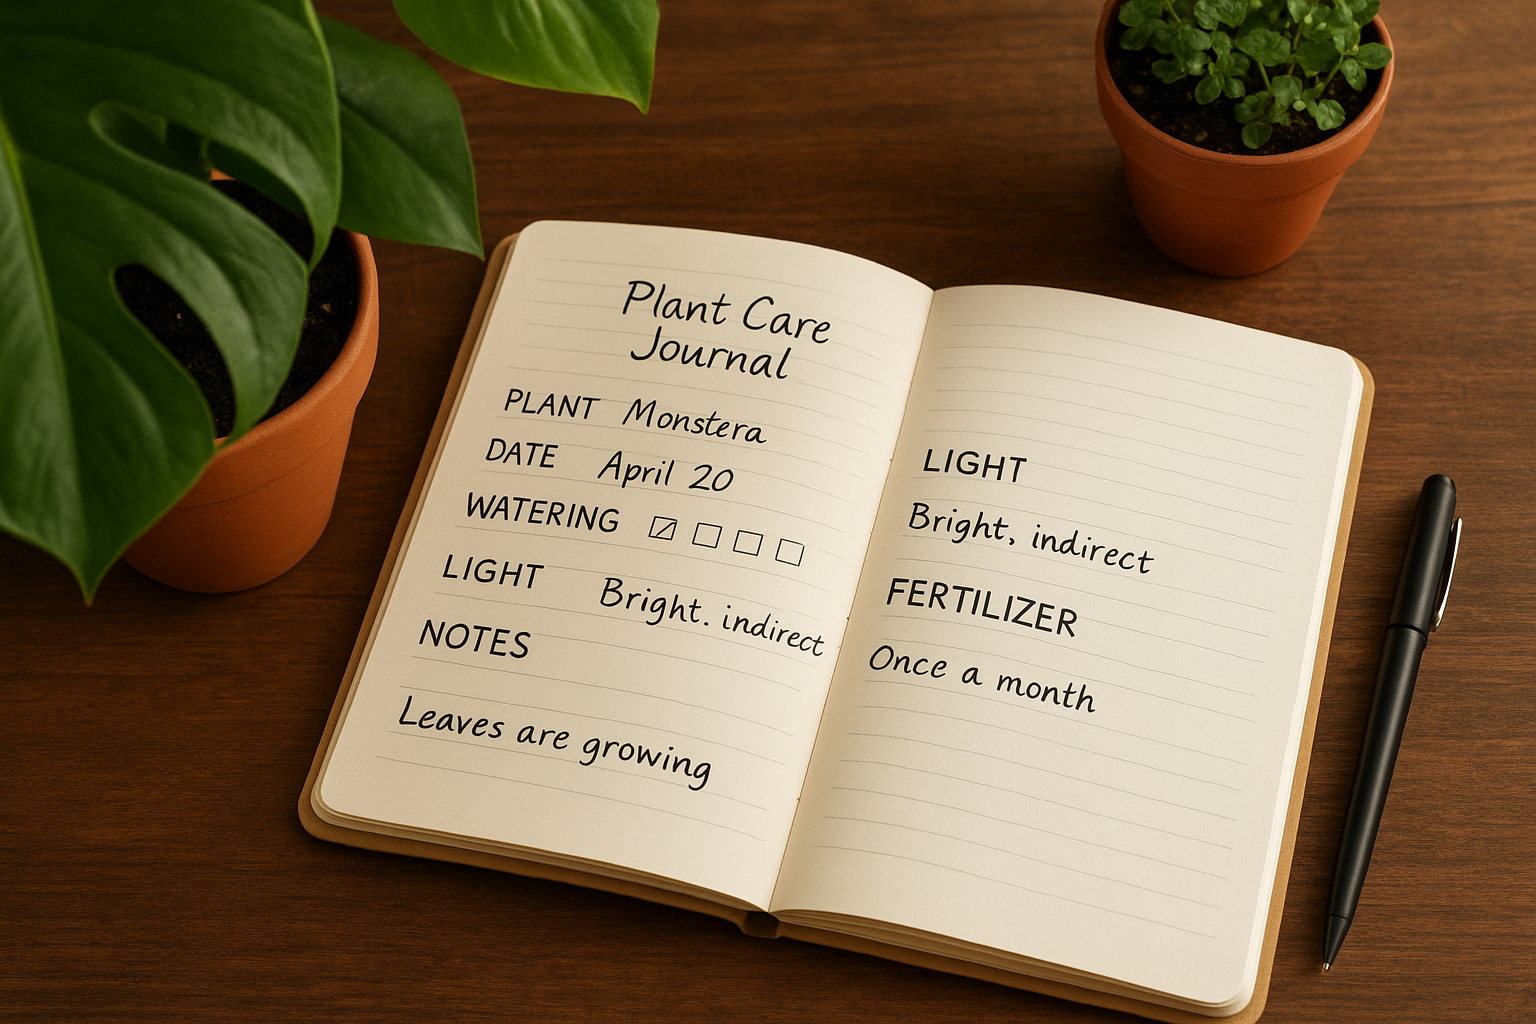 Plant Care
Journal
PLANT Monstera
DATE April 20
WATERING ☑ ☐ ☐ ☐
LIGHT Bright. indirect
NOTES
Leaves are growing
LIGHT
Bright, indirect
FERTILIZER
Once a month